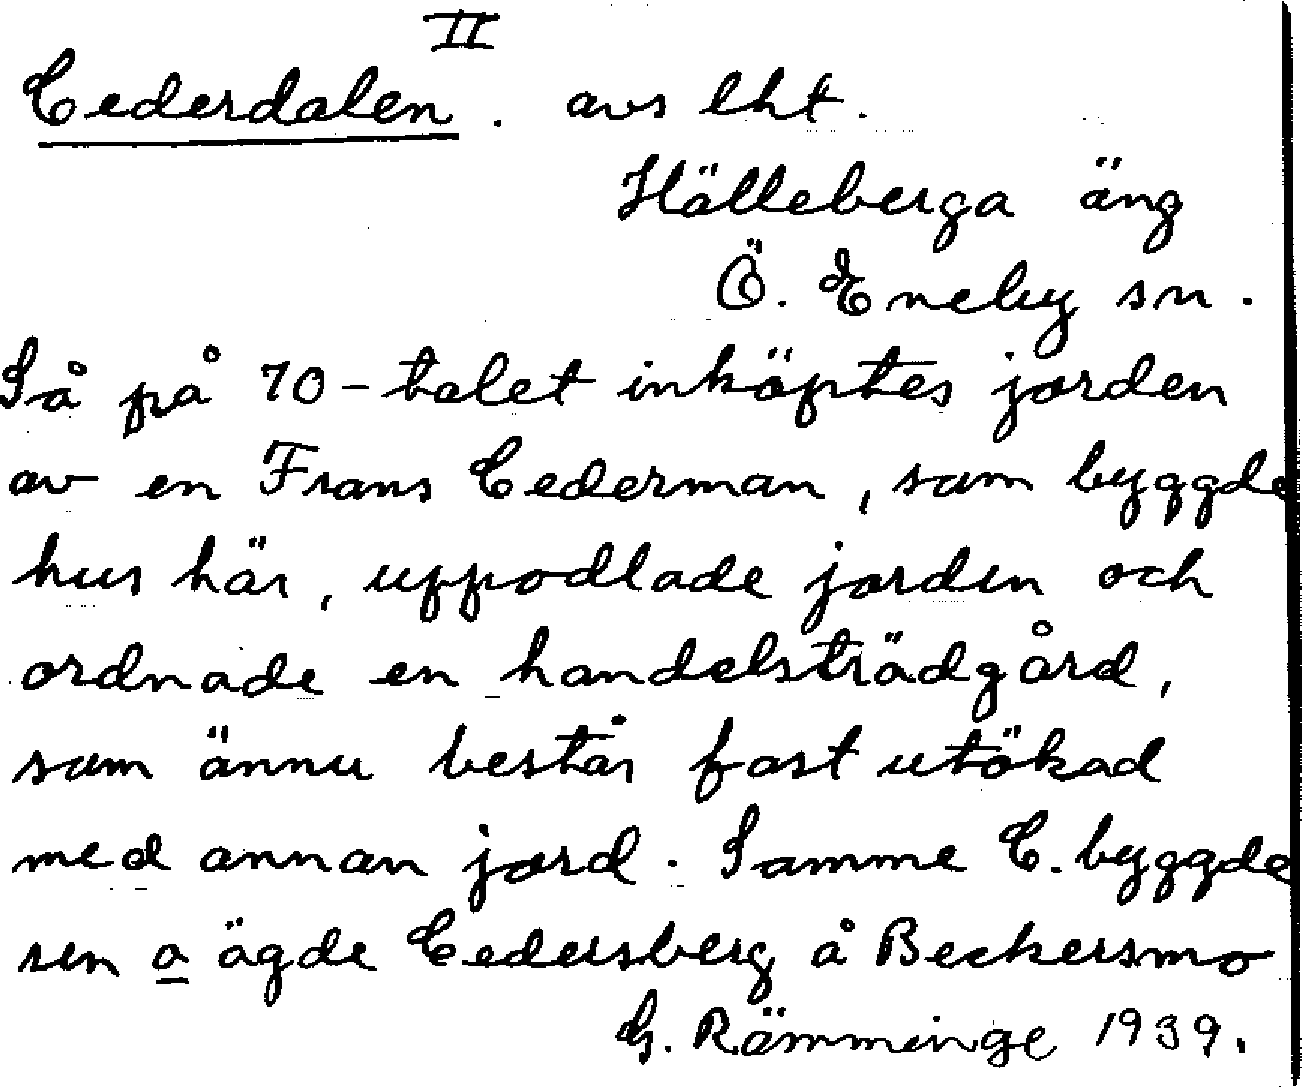 II
Cederdalen. avs lht.
Hälleberga äng
Ö. Eneby sn.
Så på 70-talet inköptes jorden
av en Frans Cederman, som byggde
hus här, uppodlade jorden och
ordnade en handelsträdgård,
som ännu består fast utökad
med annan jord. Samme C. byggde
sen o ägde Cedersberg å Beckersmo
G. Rämminge 1939.